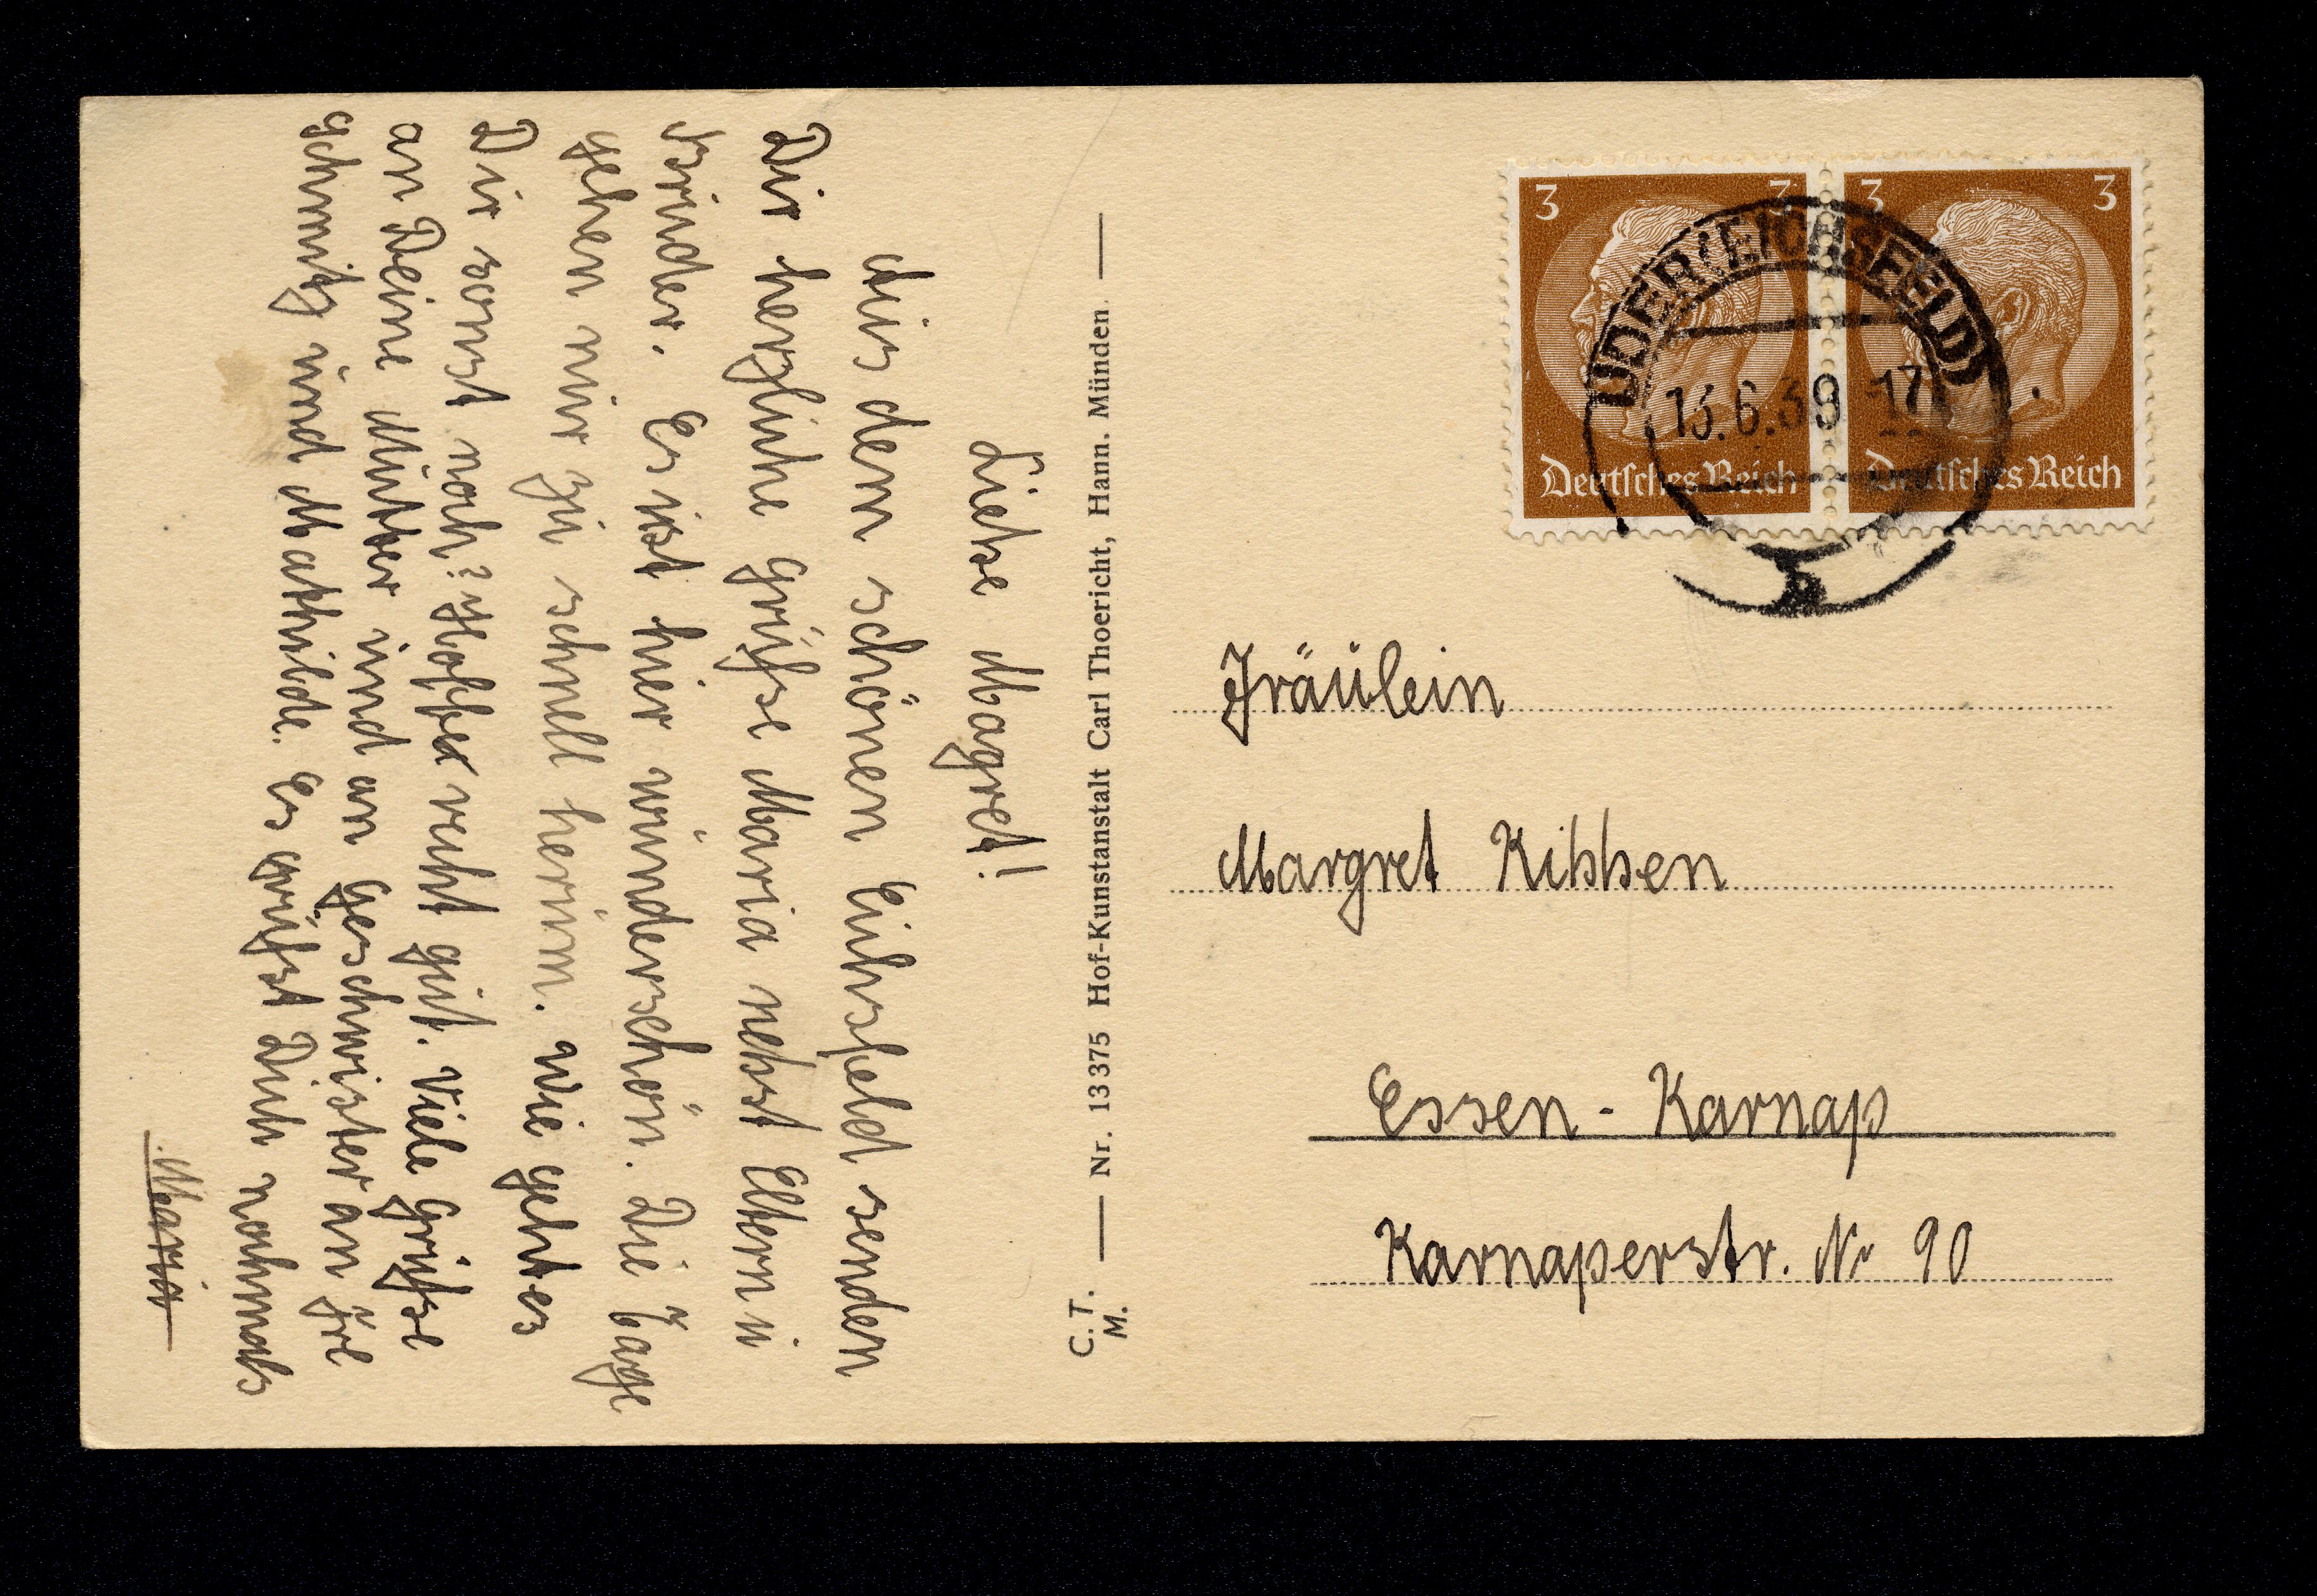 Liebe Magret!
Aus dem schönen Eichsfeld senden
Dir herzliche Grüße Maria nebst Eltern u
Bruder. Es ist hier wunderschön. Die Tage
gehen nur zu schnell herum. Wie geht es
Dir sonst noch? Hoffe recht gut. Viele Grüße
an Deine Mutter und an Geschwister an Frl
Schmitz und Mathilde. Es grüßt Dich nochmals
Maria
C. T. M.
Nr. 13375 Hof-Kunstanstalt Carl Thoericht, Hann. Münden
3 3
Deutsches Reich
3 3
Deutsches Reich
UDER (EICHSFELD)
13.6.39 17
Fräulein
Margret Kibben
Essen - Karnap
Karnaperstr. Nr 90